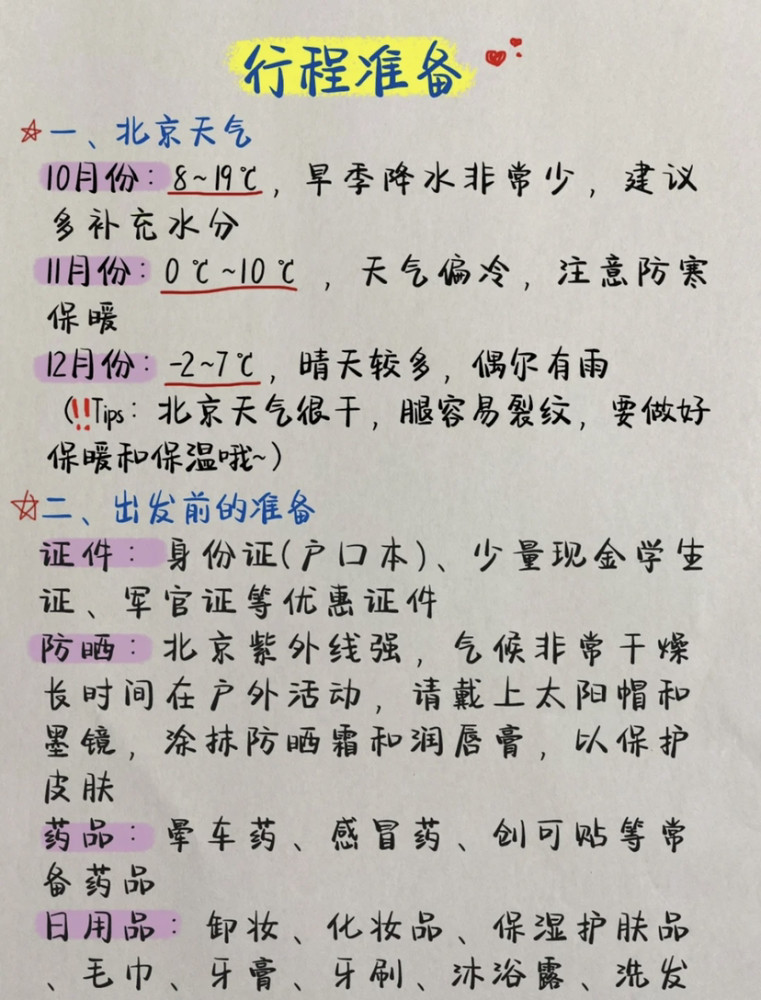 行程准备
一、北京天气
10月份：8~19℃，旱季降水非常少，建议
多补充水分
11月份：0℃~10℃，天气偏冷，注意防寒
保暖
12月份：-2~7℃，晴天较多，偶尔有雨
（!!Tips：北京天气很干，腿容易裂纹，要做好
保暖和保温哦~）
二、出发前的准备
证件：身份证(户口本)、少量现金学生
证、军官证等优惠证件
防晒：北京紫外线强，气候非常干燥
长时间在户外活动，请戴上太阳帽和
墨镜，涂抹防晒霜和润唇膏，以保护
皮肤
药品：晕车药、感冒药、创可贴等常
备药品
日用品：卸妆、化妆品、保湿护肤品
、毛巾、牙膏、牙刷、沐浴露、洗发